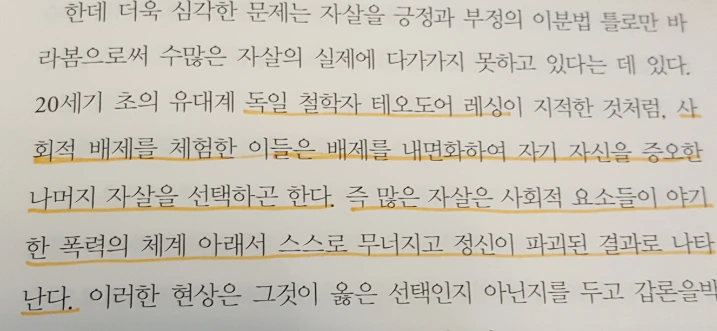 한데 더욱 심각한 문제는 자살을 긍정과 부정의 이분법 틀로만 바
라봄으로써 수많은 자살의 실제에 다가가지 못하고 있다는 데 있다.
20세기 초의 유대계 독일 철학자 테오도어 레싱이 지적한 것처럼, 사
회적 배제를 체험한 이들은 배제를 내면화하여 자기 자신을 증오한
나머지 자살을 선택하곤 한다. 즉 많은 자살은 사회적 요소들이 야기
한 폭력의 체계 아래서 스스로 무너지고 정신이 파괴된 결과로 나타
난다. 이러한 현상은 그것이 옳은 선택인지 아닌지를 두고 갑론을박